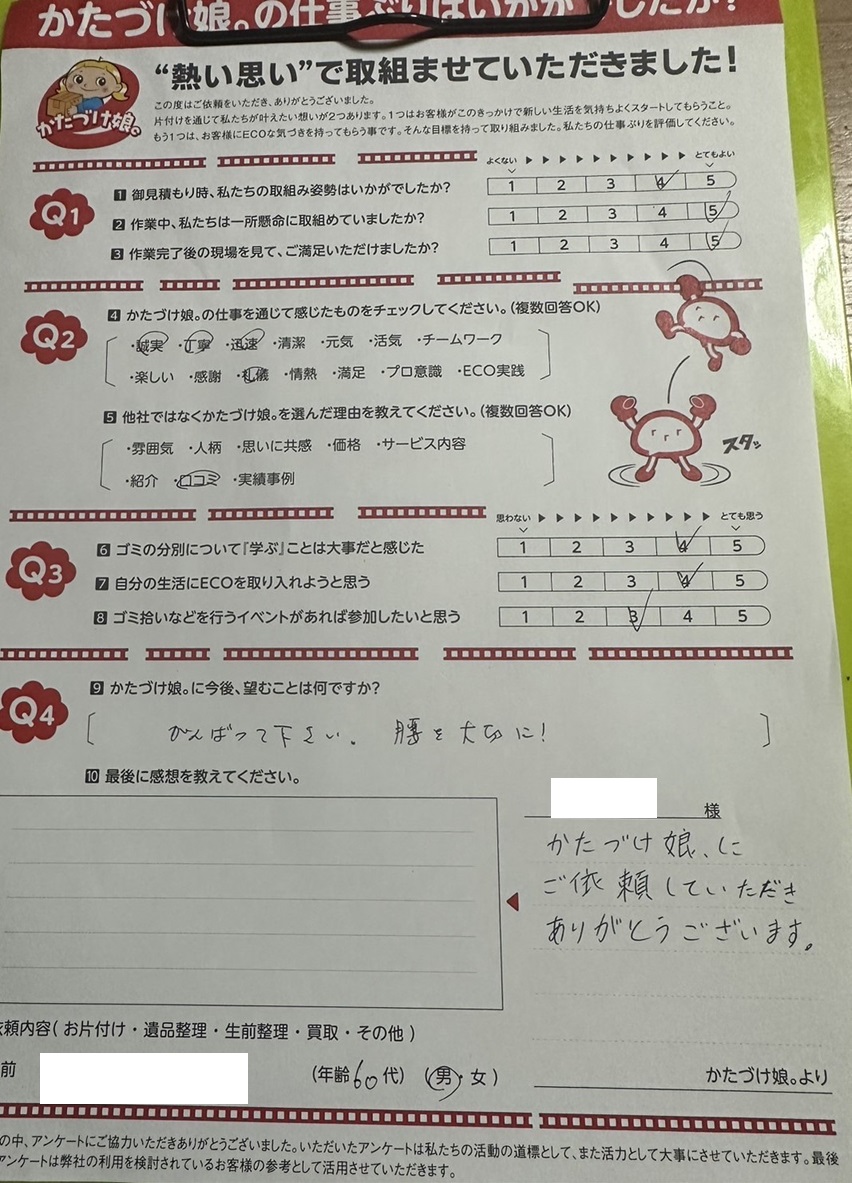 “熱い思い”で取組ませていただきました！
かたづけ娘。
この度はご依頼をいただき、ありがとうございました。
片付けを通じて私たちが叶えたい想いが2つあります。1つはお客様がこのきっかけで新しい生活を気持ちよくスタートしてもらうこと。
もう1つは、お客様にECOな気づきを持ってもらう事です。そんな目標を持って取り組みました。私たちの仕事ぶりを評価してください。
よくない ▶ ▶ ▶ ▶ ▶ ▶ ▶ ▶ ▶ ▶ とてもよい
Q1
1 御見積もり時、私たちの取組み姿勢はいかがでしたか？ 1 2 3 4 5
2 作業中、私たちは一所懸命に取組めていましたか？ 1 2 3 4 5
3 作業完了後の現場を見て、ご満足いただけましたか？ 1 2 3 4 5
Q2
4 かたづけ娘。の仕事を通じて感じたものをチェックしてください。（複数回答OK）
・誠実 ・丁寧 ・迅速 ・清潔 ・元気 ・活気 ・チームワーク
・楽しい ・感謝 ・礼儀 ・情熱 ・満足 ・プロ意識 ・ECO実践
5 他社ではなくかたづけ娘。を選んだ理由を教えてください。（複数回答OK）
・雰囲気 ・人柄 ・思いに共感 ・価格 ・サービス内容
・紹介 ・口コミ ・実績事例
スタッ
思わない ▶ ▶ ▶ ▶ ▶ ▶ ▶ ▶ ▶ ▶ とても思う
Q3
6 ゴミの分別について『学ぶ』ことは大事だと感じた 1 2 3 4 5
7 自分の生活にECOを取り入れようと思う 1 2 3 4 5
8 ゴミ拾いなどを行うイベントがあれば参加したいと思う 1 2 3 4 5
Q4
9 かたづけ娘。に今後、望むことは何ですか？
がんばって下さい。 腰を大切に！
10 最後に感想を教えてください。
様
かたづけ娘、に
ご依頼していただき
ありがとうございます。
頼内容（お片付け・遺品整理・生前整理・買取・その他）
前 （年齢60代）（男・女）
かたづけ娘。より
の中、アンケートにご協力いただきありがとうございました。いただいたアンケートは私たちの活動の道標として、また活力として大事にさせていただきます。最後
アンケートは弊社の利用を検討されているお客様の参考として活用させていただきます。